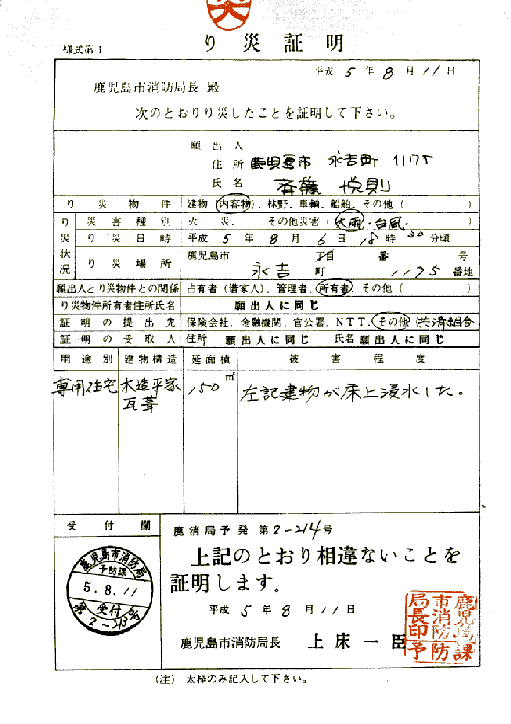 災
様式第1
り災証明
平成 5 年 8 月 11 日
鹿児島市消防局長 殿
次のとおりり災したことを証明して下さい。
願出人
住所 鹿児島市 永吉町 1175
氏名 斉藤 悦則
り災物件 建物(内容物)、林野、車輌、船舶、その他( )
り災状況
災害種別 火災、その他災害(大雨・台風)
り災日時 平成 5 年 8 月 6 日 18 時 30 分頃
り災場所 鹿児島市 永吉 町 丁目 番 号 1175 番地
願出人とり災物件との関係 占有者(借家人)、管理者、所有者、その他( )
り災物件所有者住所氏名 願出人に同じ
証明の提出先 保険会社、金融機関、官公署、NTT、その他(共済組合
証明の受取人 住所 願出人に同じ 氏名 願出人に同じ
用途別 建物構造 延面積 被害程度
専用住宅 木造平家瓦葺 150㎡ 左記建物が床上浸水した。
受付欄
鹿児島市消防局
予防課
5.8.11
受付
第2-213号
鹿消局予発第2-214号
上記のとおり相違ないことを
証明します。
平成 5 年 8 月 11 日
鹿児島市消防局長 上床一臣
鹿児島市消防局長印予防課
(注) 太枠のみ記入して下さい。